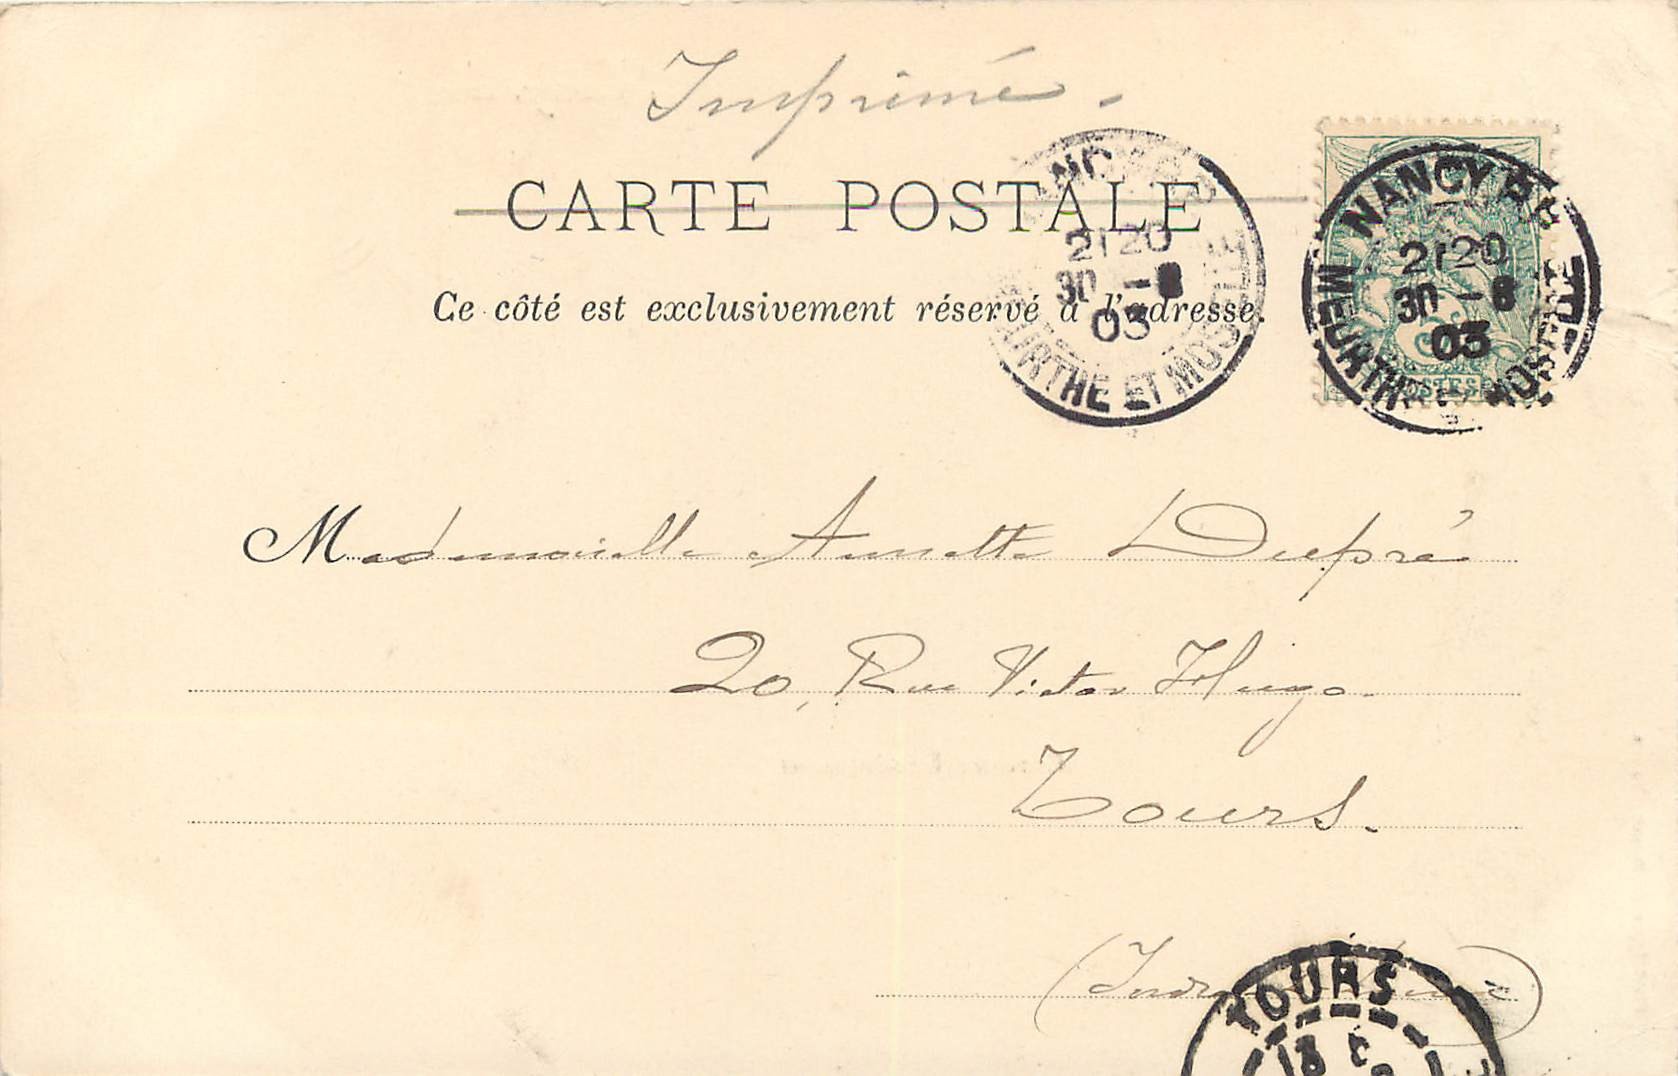 Imprimé.
CARTE POSTALE
Ce côté est exclusivement réservé à l'adresse.
NANCY
2120
30 -8
03
MEURTHE ET MOSELLE
NANCY
2120
30 -8
03
MEURTHE ET MOSELLE
POSTES
Mademoiselle Annette Dupré
20, Rue Victor Hugo.
Tours.
(Indre
TOURS